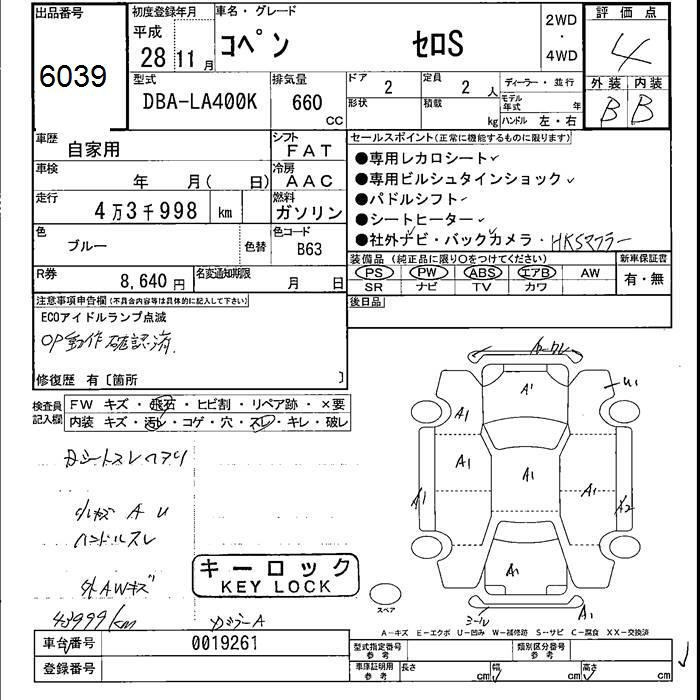 出品番号
6039
初度登録年月
平成
28 11 月
車名・グレード
コペン セロS
2WD
・
4WD
評価点
4
外装 内装
B B
型式
DBA-LA400K
排気量
660
CC
ドア
2
形状
定員
2 人
積載
kg
ディーラー・並行
モデル
年式 年
ハンドル 左・右
車歴
自家用
シフト
FAT
車検
年 月( 日)
冷房
AAC
走行
4万3千998 km
燃料
ガソリン
色
ブルー
色替
色コード
B63
R券
8,640 円
名変通知期限
月 日
セールスポイント(正常に機能するものに限ります)
●専用レカロシート✓
●専用ビルシュタインショック✓
●パドルシフト✓
●シートヒーター✓
●社外ナビ・バックカメラ・HKSマフラー
装備品 (純正品に限り○をつけてください)
PS PW ABS エアB AW
SR ナビ TV カワ
新車保証書
有・無
後日品
注意事項申告欄(不具合内容等は具体的に記入して下さい)
ECOアイドルランプ点滅
OP動作確認済.
修復歴 有〔箇所 〕
検査員
記入欄
FW キズ・飛石・ヒビ割・リペア跡・×要
内装 キズ・汚レ・コゲ・穴・スレ・キレ・破レ
小キズ A U
ハンドルスレ
外AWキズ
43999km
キーロック
KEY LOCK
スペア
A1
U1
A1
A1
A1
A1
A1
A2
A1
A1
A-キズ E-エクボ U-凹み W-補修跡 S-サビ C-腐食 XX-交換済
車台番号
0019261
登録番号
型式指定番号
参考
類別区分番号
参考
車庫証明用
参考
長さ cm 幅 cm 高さ cm